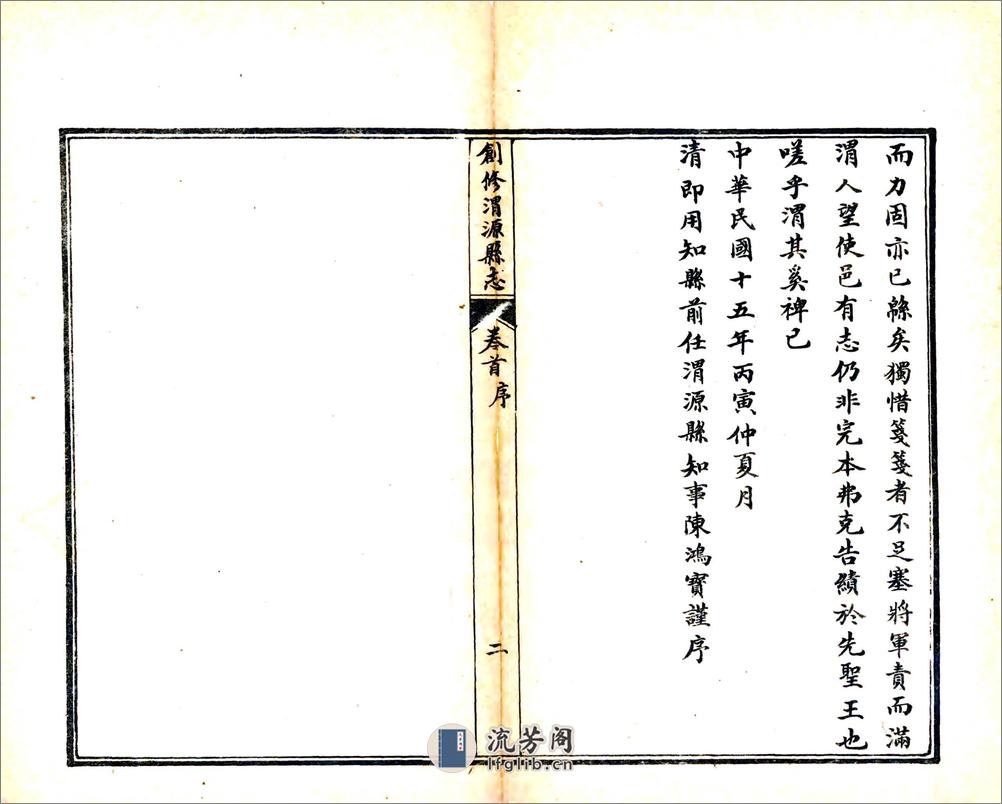 而力固亦已緜矣獨惜箋箋者不足塞將軍責而滿
渭人望使邑有志仍非完本弗克告績於先聖王也
嗟乎渭其奚裨已
中華民國十五年丙寅仲夏月
清即用知縣前任渭源縣知事陳鴻寶謹序
創修渭源縣志
卷首序
二
流芳阁
lfglib.cn